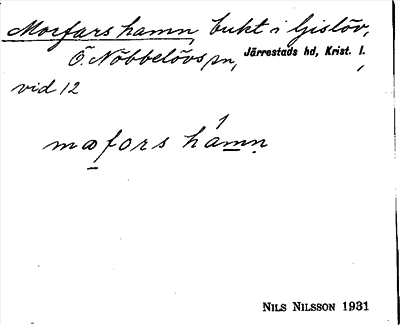 Morfars hamn, bukt i Gislöv,
Ö. Nöbbelövs sn, Järrestads hd, Krist. l.
vid 12
mɷfors hamn
NILS NILSSON 1931